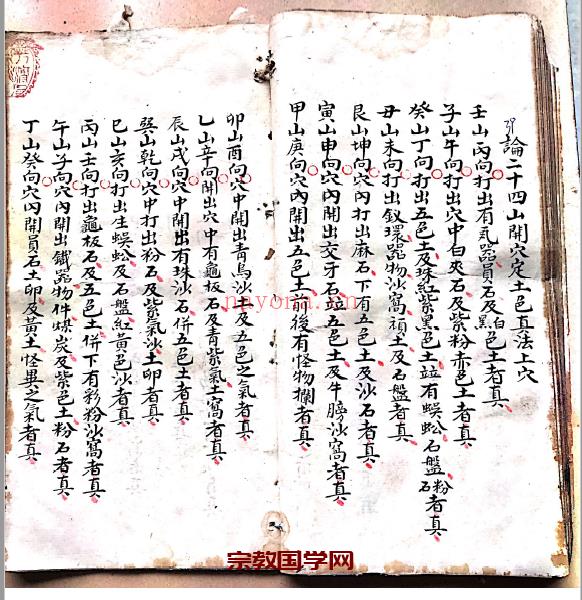 論二十四山開穴定土色真法上穴
壬山丙向打出有瓦器員石及黑白色土者真
子山午向打出穴中白夾石及紫粉赤色土者真
癸山丁向打出五色土及珠紅紫黑色土竝有蜈蚣石盤石粉者真
丑山未向打出釵環器物沙窩頑土及石盤者真
艮山坤向穴內打出麻石下有五色土及沙石者真
寅山申向穴內開出交牙石竝五色土及牛膀沙窩者真
甲山庚向穴內開出五色土前後有怪物攔者真
卯山酉向穴中開出青烏沙土及五色之氣者真
乙山辛向開出穴中有龜板石及青紫氣土窩者真
辰山戌向穴中開出有珠沙石併五色土者真
巽山乾向穴中打出粉石及紫氣沙土卵者真
巳山亥向打出生蜈蚣及石盤紅黃色沙者真
丙山壬向打出龜板石及五色土併下有彩粉沙窩者真
午山子向穴內開出鐵器物件煤炭及紫色土粉石者真
丁山癸向穴內開員石土卵及黃土怪異之氣者真
nayona.cn
宗教国学网